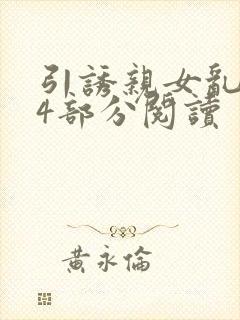 引誘親女亂
4部分閱讀
黃永倫